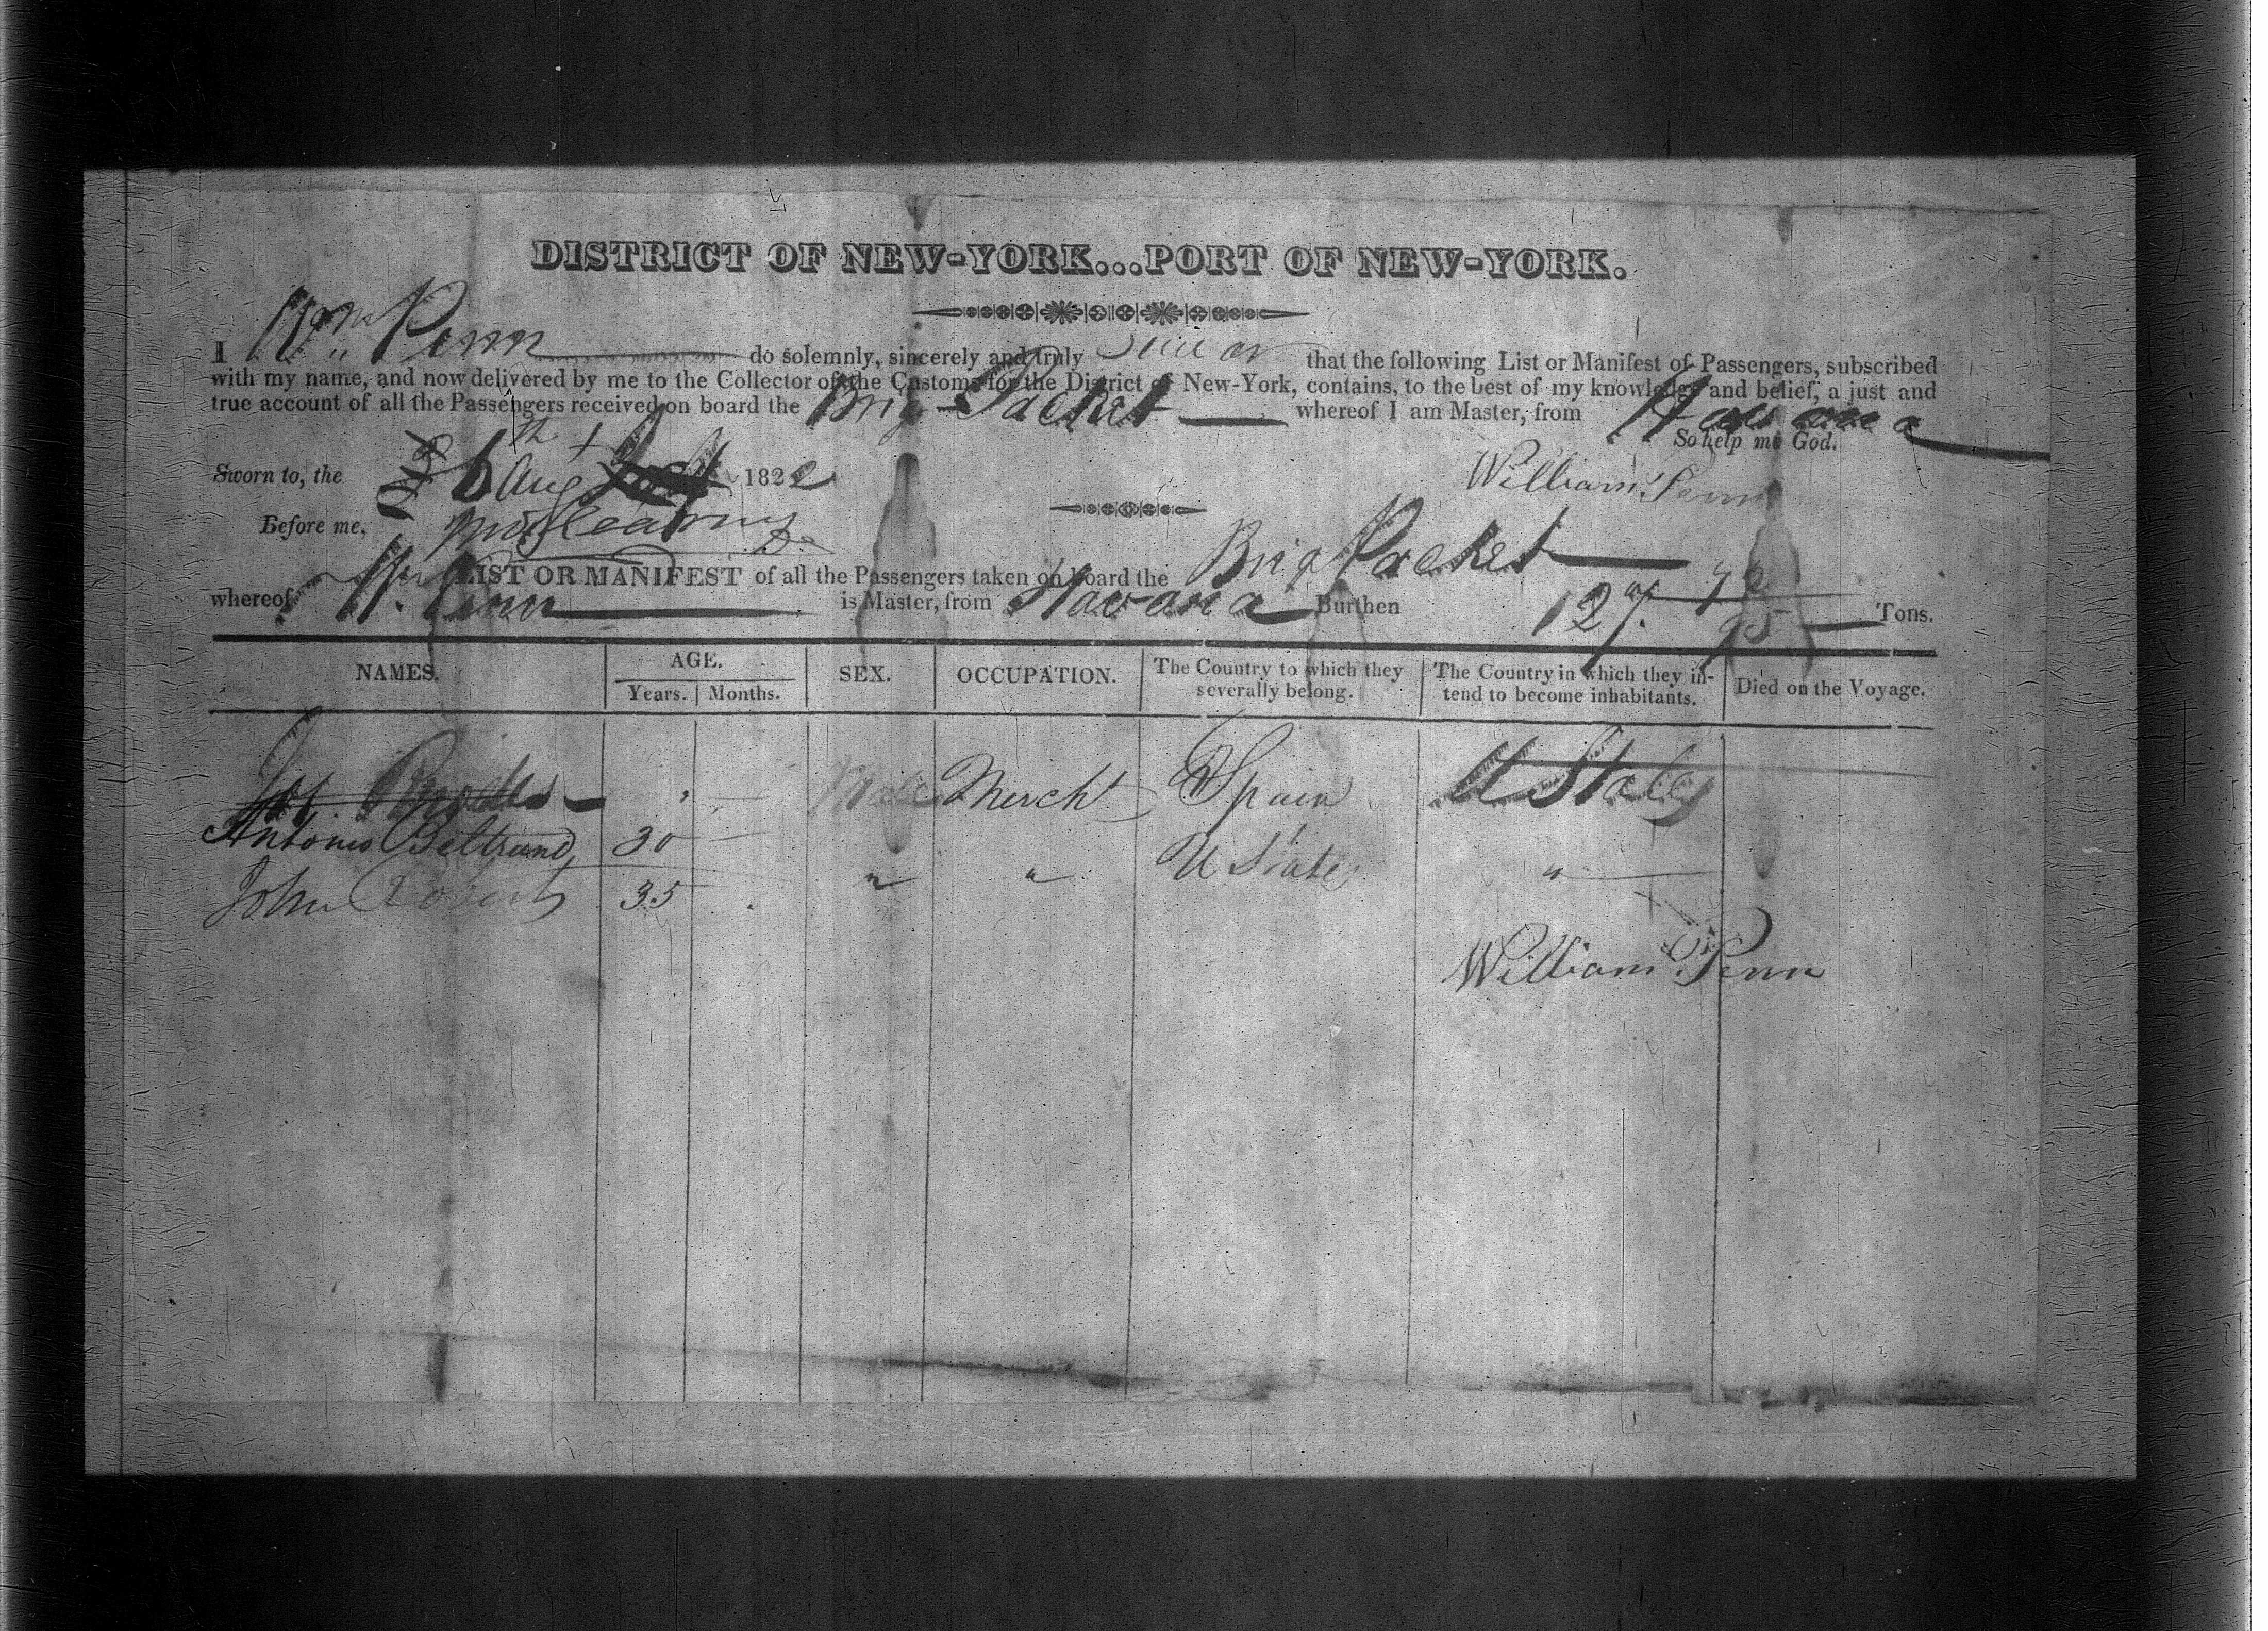 DISTRICT OF NEW-YORK...PORT OF NEW-YORK.
I Wm Penn do solemnly, sincerely and truly swear that the following List or Manifest of Passengers, subscribed
with my name, and now delivered by me to the Collector of the Customs for the District of New-York, contains, to the best of my knowledge and belief, a just and
true account of all the Passengers received on board the Brig Packet whereof I am Master, from Havana
So help me God.
Sworn to, the 6th Augt 1822
William Penn
Before me,
LIST OR MANIFEST of all the Passengers taken on board the Brig Packet
whereof W. Penn is Master, from Havana Burthen 127 Tons.
NAMES. AGE. SEX. OCCUPATION. The Country to which they severally belong. The Country in which they intend to become inhabitants. Died on the Voyage.
Years. Months.
Male Mercht Spain U States
Antonio Beltrand 30
John Roberts 35 " " U States "
William Penn